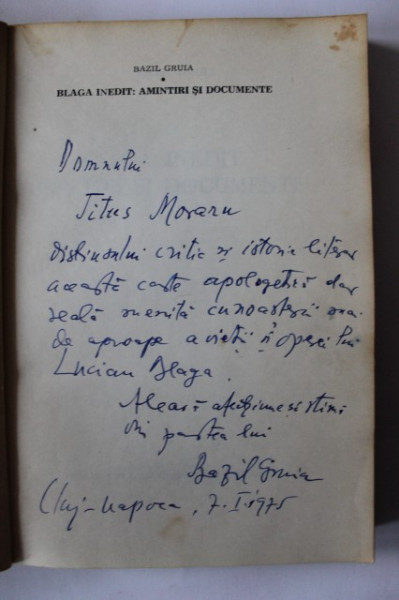 BAZIL GRUIA
•
BLAGA INEDIT: AMINTIRI ȘI DOCUMENTE
Domnului
Titus Moraru
distinsului critic și istoric literar
această carte apologetică dar
reală menită cunoașterii mai
de aproape a vieții și operei lui
Lucian Blaga.
Aleasă afecțiune și stimă
din partea lui
Bazil Gruia
Cluj-Napoca, 7.I.1975